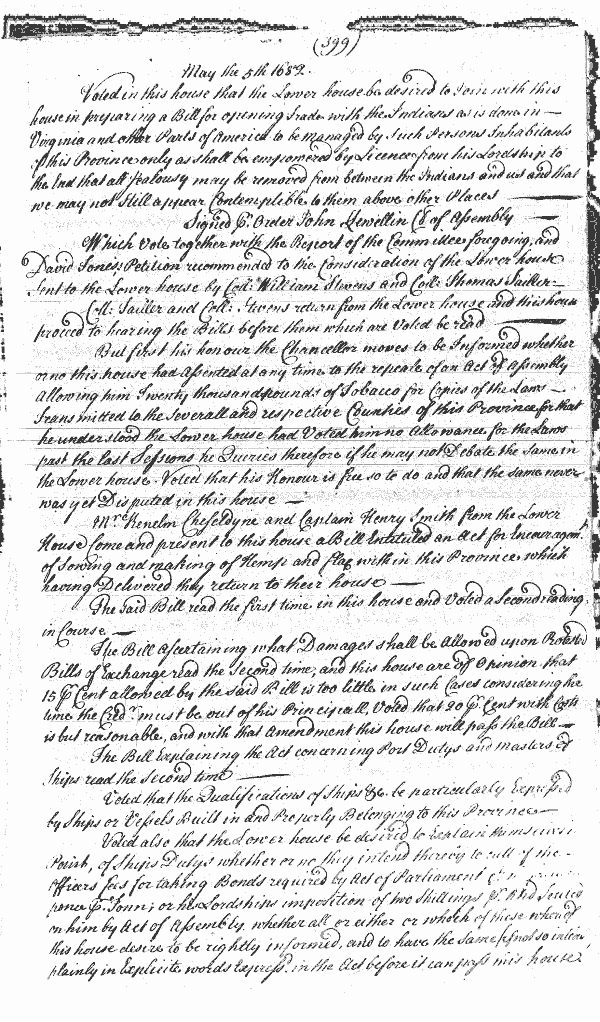 (399)
May the 5th 1682.
Voted in this house that the Lower house be desired to Join with this
house in preparing a Bill for opening Trade with the Indians as is done in
Virginia and other Parts of America to be managed by such Persons Inhabitants
of this Province only as shall be empowered by Licence from his Lordship to
the End that all Jealousy may be removed from between the Indians and us and that
we may not still appear Contemptible to them above other Places
Signed p. Order John Llewellin Cl: of Assembly
Which Vote together with the Report of the Committee foregoing, and
David Jones's Petition recommended to the Consideration of the Lower house
sent to the Lower house by Coll: William Stevens and Coll: Thomas Tailler
Coll: Tailler and Coll: Stevens return from the Lower house and this house
proceed to hearing the Bills before them which are Voted be read
But first his honour the Chancellor moves to be Informed whether
or no this house had Assented at any time to the repeale of an Act of Assembly
Allowing him Twenty thousand pounds of Tobacco for Copies of the Laws
Transmitted to the Severall and respective Counties of this Province for that
he understood the Lower house had Voted him no Allowance for the Laws
past the last Sessions he Queries therefore if he may not Debate the same in
the Lower house. Voted that his Honour is free so to do and that the same never
was yet Disputed in this house
Mr. Kenelm Cheseldyne and Captain Henry Smith from the Lower
House Come and present to this house a Bill Entituled an Act for Encouragemt.
of Sowing and making of Hemp and flax within this Province which
having Delivered they return to their house
The said Bill read the first time in this house and Voted a Second reading
in Course
The Bill Ascertaining what Damages shall be Allowed upon Protested
Bills of Exchange read the Second time, and this house are of Opinion that
15 p Cent allowed by the said Bill is too little in such Cases considering the
time the Credr. must be out of his Principall, Voted that 20 p. Cent with Costs
is but reasonable, and with that Amendment this house will pass the Bill
The Bill Explaining the Act concerning Port Dutys and masters of
Ships read the Second time
Voted that the Qualifications of Ships &c. be particularly Expressed
by Ships or Vessels Built in and Properly Belonging to this Province
Voted also that the Lower house be desired to Explain themselves
Point, of Ships Dutys whether or no they intend thereby to cutt of the
Officers fees for taking Bonds required by Act of Parliament
pence p. Tonn; or his Lordships imposition of two Shillings p. Hhd Settled
on him by Act of Assembly, whether all or either or which of these whereof
this house desire to be rightly informed, and to have the same if not so inten
plainly in Explicite words Express'd in the Act before it can pass this house